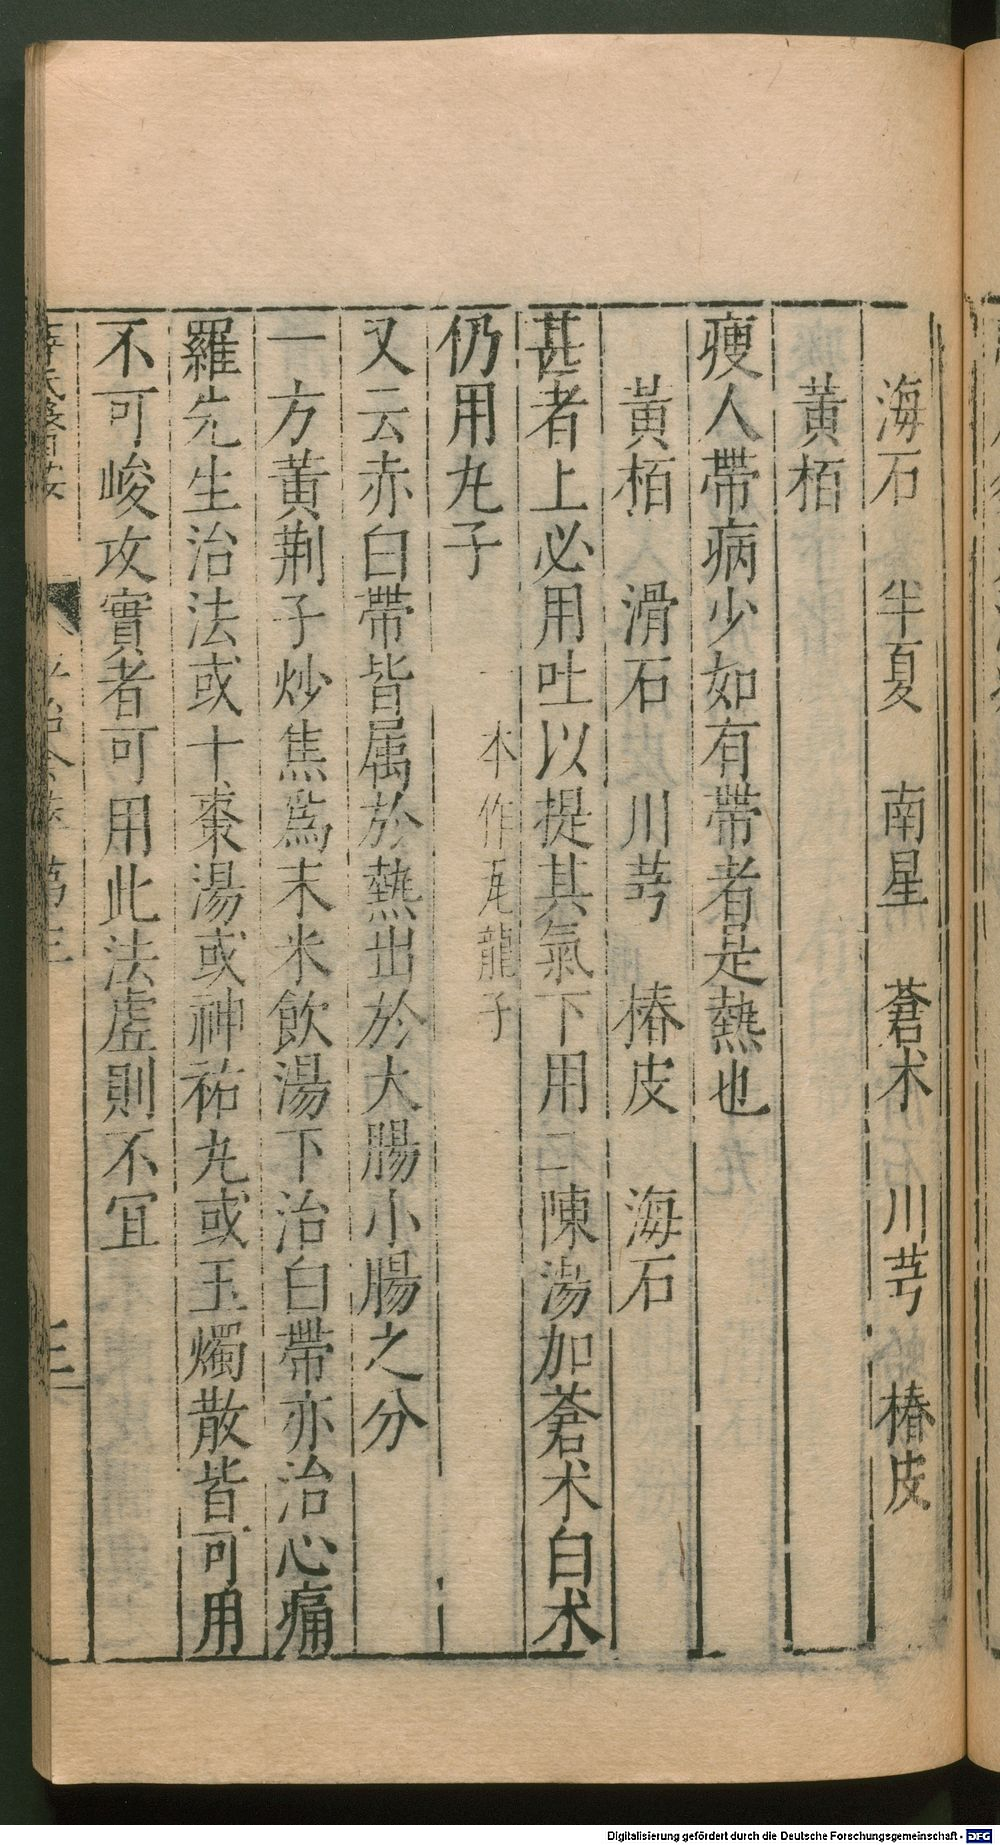 海石　半夏　南星　蒼朮　川芎　椿皮
黃栢
瘦人帶病少如有帶者是熱也
黃栢　滑石　川芎　椿皮　海石
甚者上必用吐以提其氣下用二陳湯加蒼朮白朮
仍用丸子　一本作瓦龍子
又云赤白帶皆属於熱出於大腸小腸之分
一方黃荆子炒焦爲末米飲湯下治白帶亦治心痛
羅先生治法或十棗湯或神祐丸或玉燭散皆可用
不可峻攻實者可用此法虛則不宜
Digitalisierung gefördert durch die Deutsche Forschungsgemeinschaft - DFG